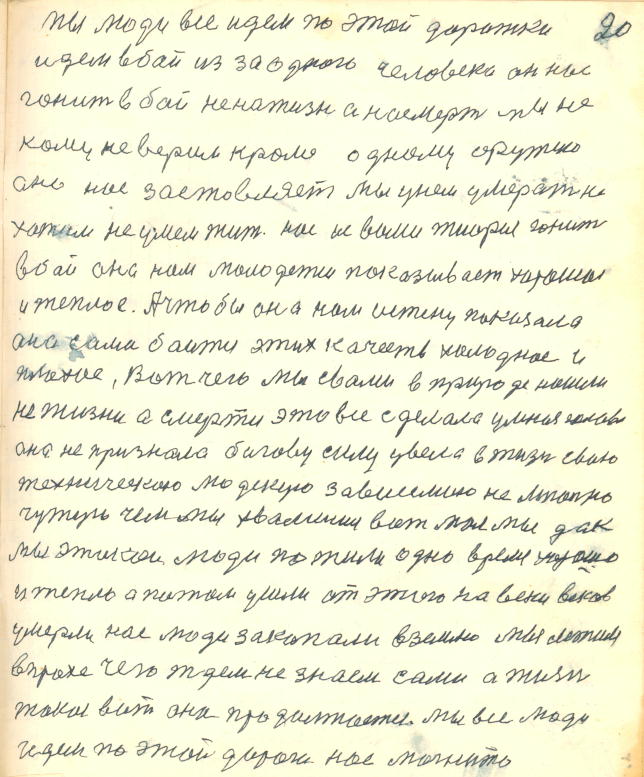 20
мы люди все идем по этой дорожки
идем в бой из за одного человека он нас
гонит в бой не на жизн а на смерт мы не
кому не верим кроме одному оружию
оно нас заставляет мы умем умерат не
хотим не умем жит. нас и вами теория гонит
в бой она нам молодежи показывает хорошое
и теплое. А чтобы она нам истену показала
она сама баится этих качеств холодное и
плохое, Вот чего мы свами в природе нашли
не жизни а смерти это все сделала умная голова
она не признала багову силу увела в жизн свою
техническою людскую зависимаю не
чутерь чем мы хвалимся вот мол мы дак
мы этакои люди пожили одно время хорошо
и тепло а потом ушли от этого на веки веков
умерли нас люди закопали в землю мы лежим
в прахе чего ждем не знаем сами а жизн
такая вот она продолжается мы все люди
идем по этой дороги нас магнито